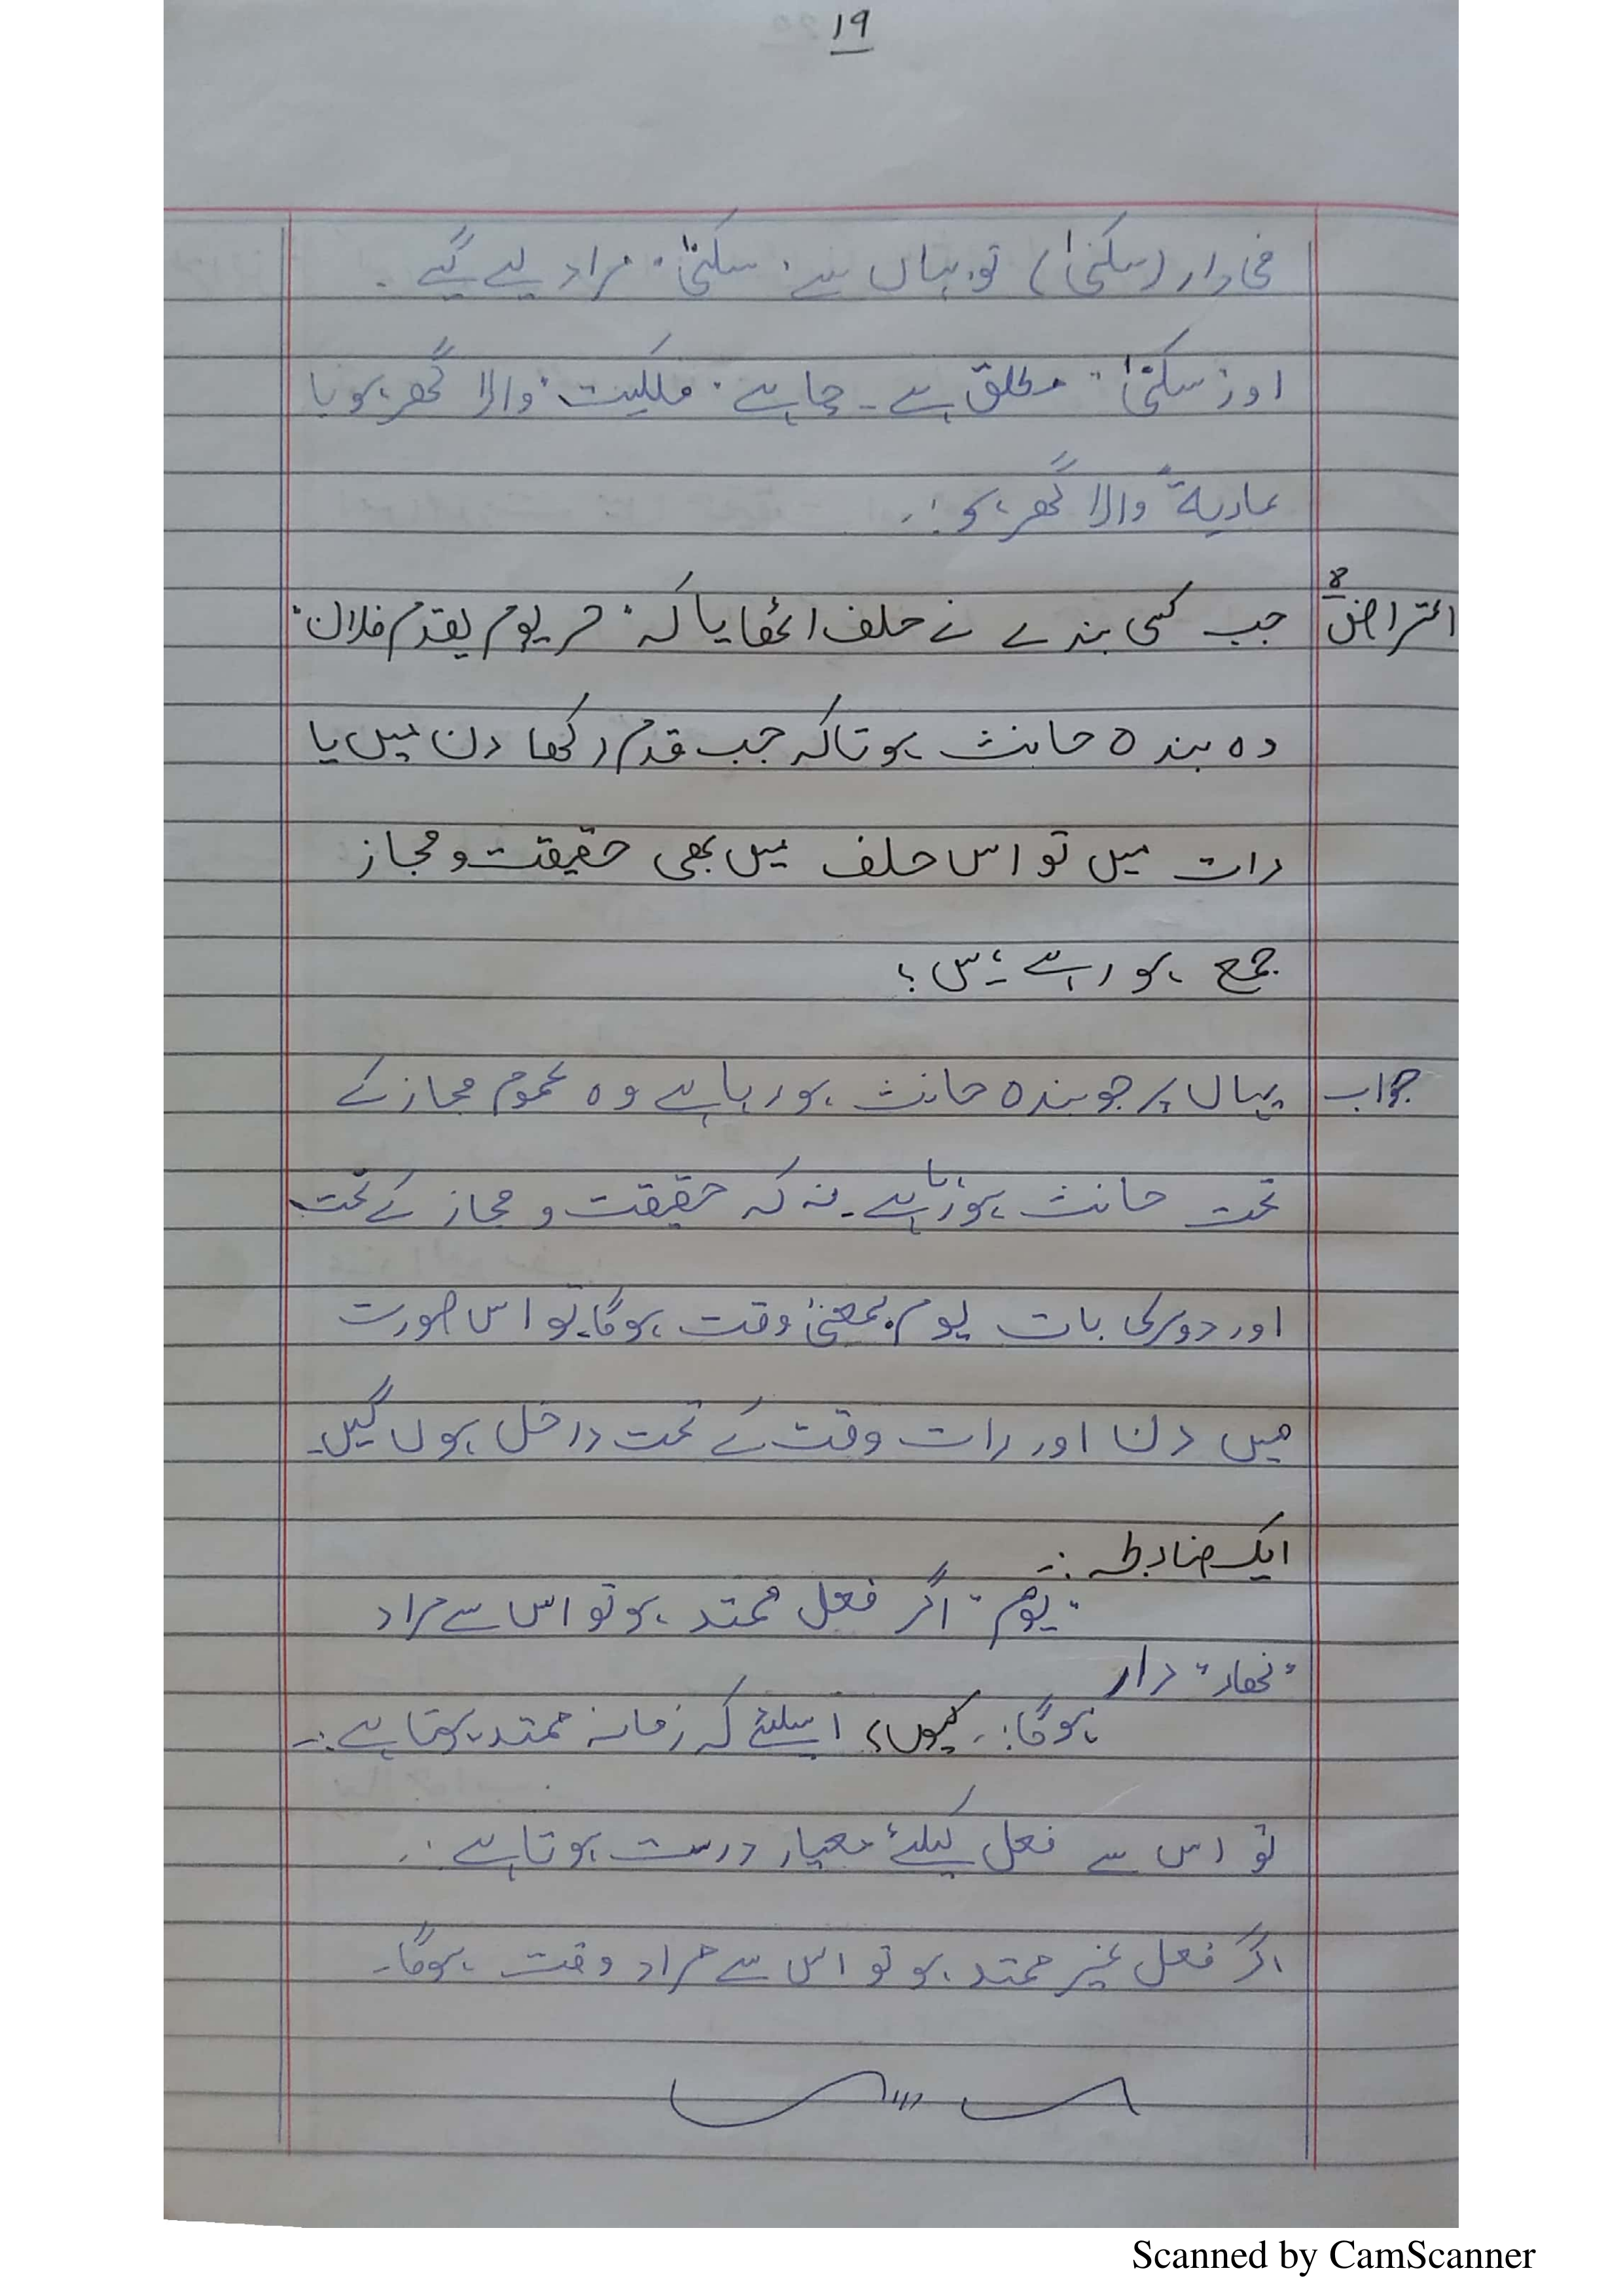 ۱۹
فی دار (سکنیٰ) تو یہاں سے "سکنیٰ" مراد لیے گیے ۔
اور "سکنیٰ" مطلق ہے ۔ چاہے "ملکیت" والا گھر ہو یا
عاریۃً والا گھر ہو :۔
اعتراض ۸ جب کسی بندے نے حلف اٹھایا کہ "حر یوم یقدم فلان"
وہ بندہ حانث ہوتا کہ جب قدم رکھا دن میں یا
رات میں تو اس حلف میں بھی حقیقت و مجاز
جمع ہو رہے ہیں ؟
جواب یہاں پر جو بندہ حانث ہو رہا ہے وہ عموم مجاز کے
تحت حانث ہو رہا ہے ۔ نہ کہ حقیقت و مجاز کے تحت
اور دوسری بات یوم بمعنیٰ وقت ہوگا۔ تو اس صورت
میں دن اور رات وقت کے تحت داخل ہوں گیں۔
ایک ضابطہ :۔
"یوم" اگر فعل ممتد ہو تو اس سے مراد
"نھار" دار
ہوگا :۔ کیوں؟ اسلئے کہ زمانہ ممتد ہوتا ہے :۔
تو اس سے فعل کیلئے معیار درست ہوتا ہے :۔
اگر فعل غیر ممتد ہو تو اس سے مراد وقت ہوگا۔
Scanned by CamScanner